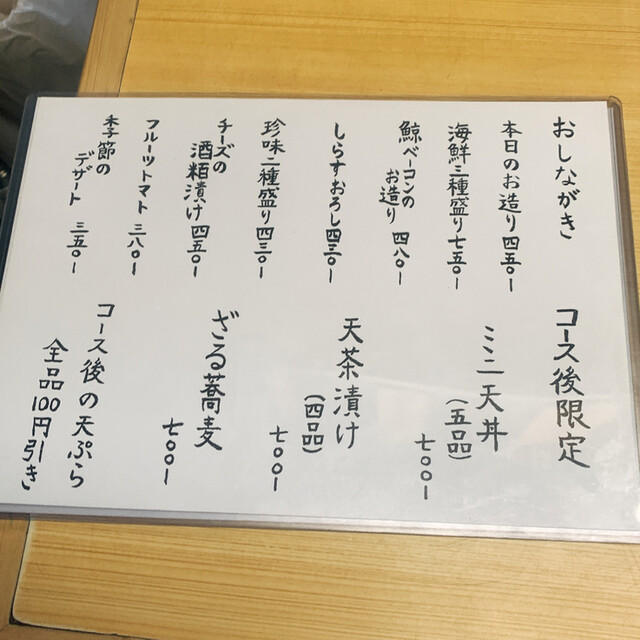 おしながき
本日のお造り 四五〇ー
海鮮三種盛り 七五〇ー
鯨ベーコンの
お造り 四八〇ー
しらすおろし 四三〇ー
珍味二種盛り 四三〇ー
チーズの
酒粕漬け 四五〇ー
フルーツトマト 三八〇ー
季節の
デザート 三五〇ー
コース後限定
ミニ天丼
(五品)
七〇〇ー
天茶漬け
(四品)
七〇〇ー
ざる蕎麦
七〇〇ー
コース後の天ぷら
全品100円引き